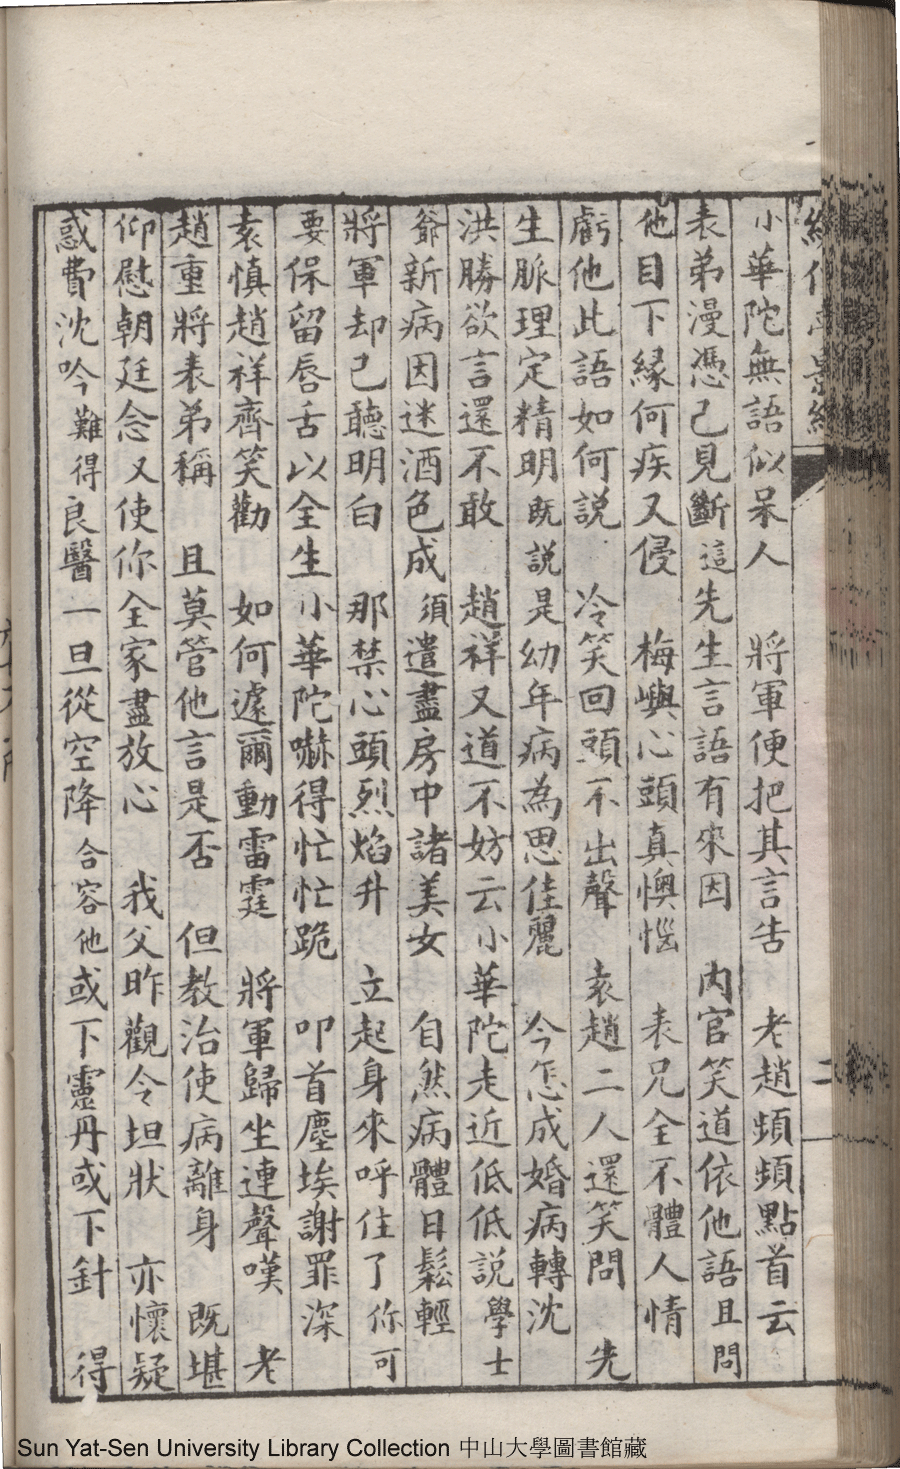 小華陀無語似呆人　將軍便把其言告　老趙頻頻點首云
表弟漫憑己見斷這先生言語有來因　內官笑道依他語且問
他目下緣何疾又侵　梅嶼心頭真懊惱　表兄全不體人情
虧他此語如何說　冷笑回頭不出聲　袁趙二人還笑問　先
生脈理定精明既說是幼年病為思佳麗　今怎成婚病轉沈
洪勝欲言還不敢　趙祥又道不妨云小華陀走近低低說學士
爺新病因迷酒色成須遣盡房中諸美女　自然病體日鬆輕
將軍却已聽明白　那禁心頭烈焰升　立起身來呼住了你可
要保留唇舌以全生小華陀嚇得忙忙跪　叩首塵埃謝罪深
袁慎趙祥齊笑勸　如何遽爾動雷霆　將軍歸坐連聲嘆　老
趙重將表弟稱　且莫管他言是否　但教治使病離身　既堪
仰慰朝廷念又使你全家盡放心　我父昨觀令坦狀　亦懷疑
惑費沈吟難得良醫一旦從空降合容他或下靈丹或下針　得
二
Sun Yat-Sen University Library Collection 中山大學圖書館藏